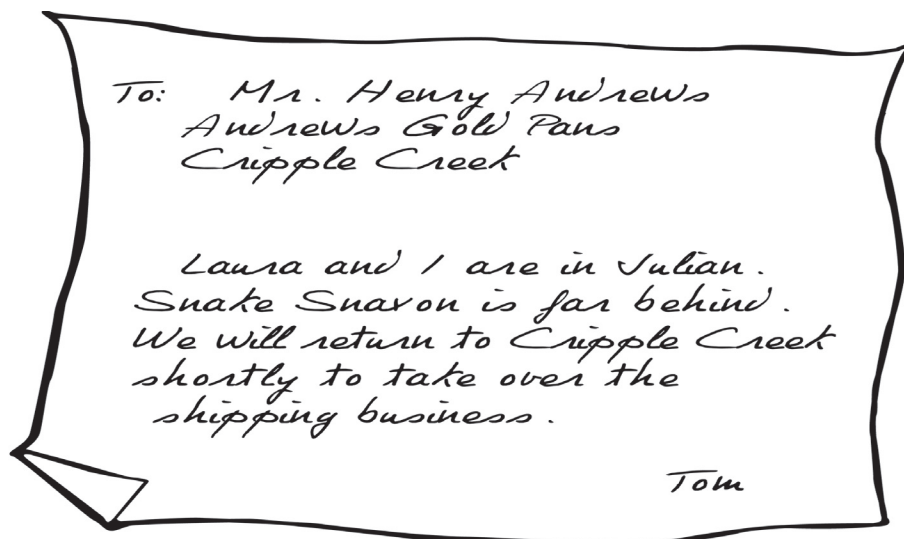 To: Mr. Henry Andrews
Andrews Gold Pans
Cripple Creek
Laura and I are in Julian.
Snake Snavon is far behind.
We will return to Cripple Creek
shortly to take over the
shipping business.
Tom